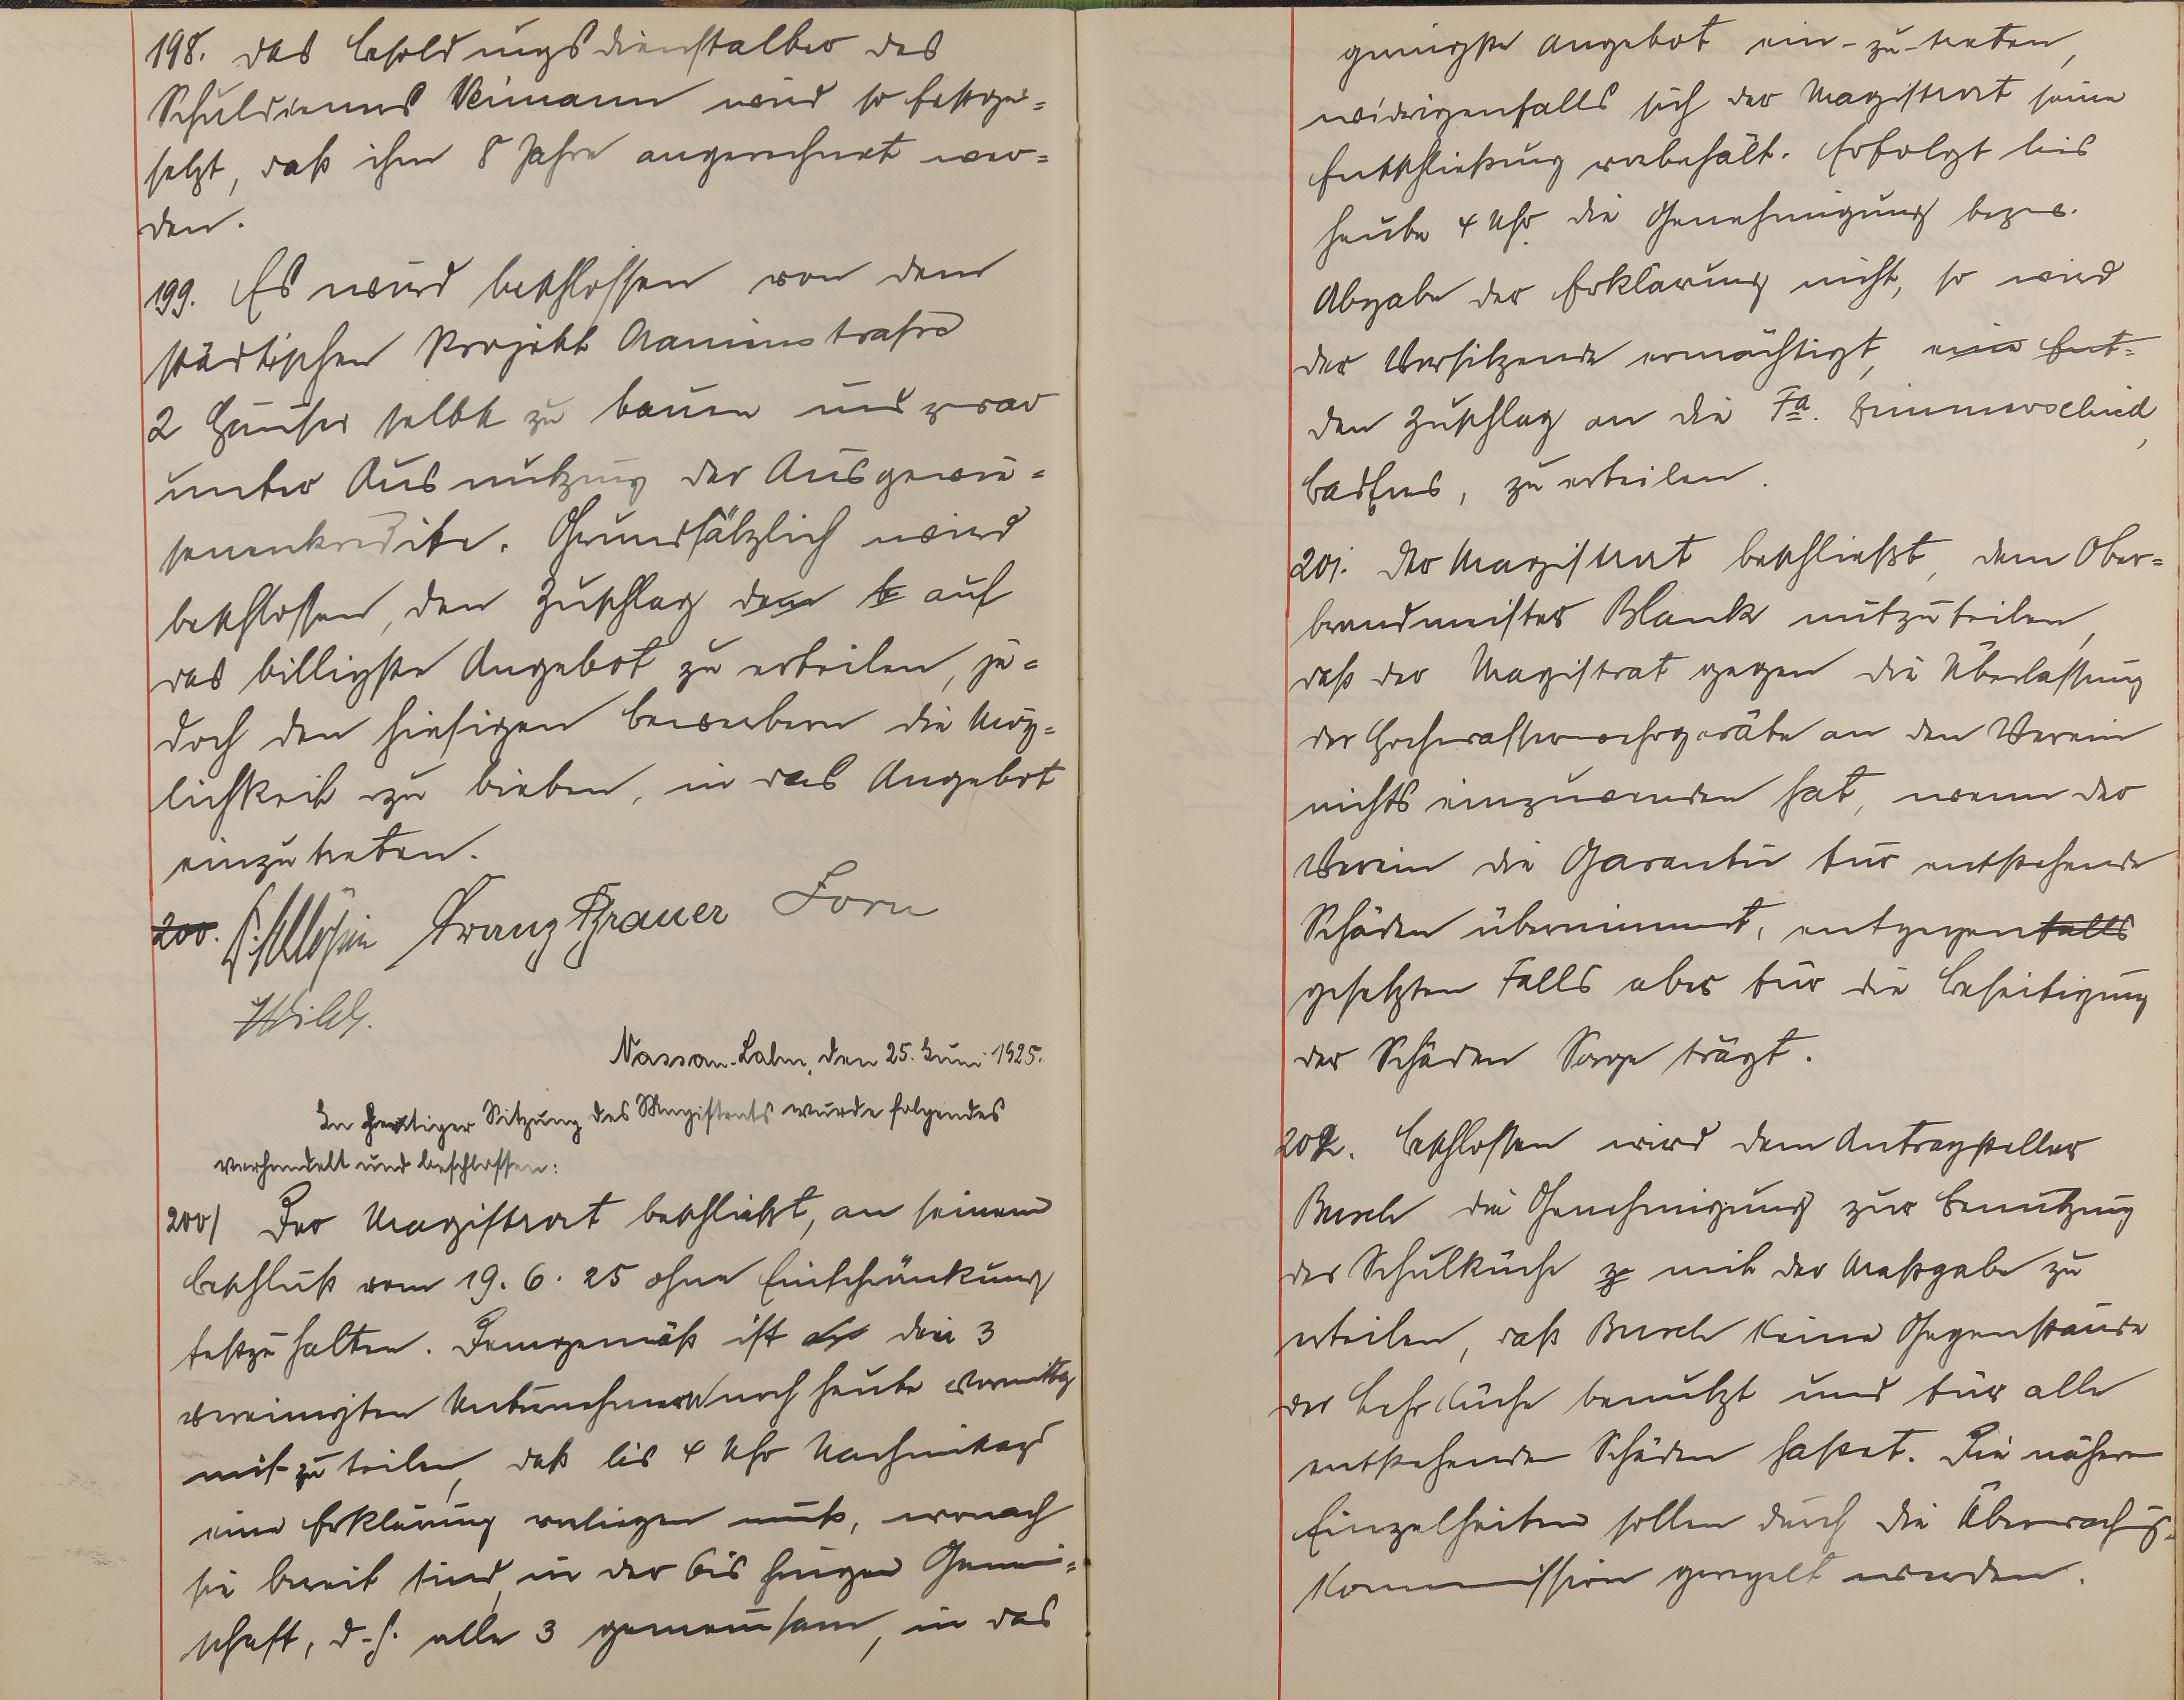 198. Das Besoldungsdienstalter des
Schuldieners Weimann wird so festge=
setzt, daß ihm 8 Jahre angerechnet wer=
den.
199. Es wird beschlossen von dem
städtischen Projekt
2 Häuser selbst zu bauen und zwar
unter Ausnutzung der Ausgewie=
senenkredite. Grundsätzlich wird
beschlossen, den Zuschlag dem b auf
das billigste Angebot zu erteilen, je=
doch den hiesigen Bewerbern die Mög=
lichkeit zu bieten, in das Angebot
einzutreten.
200. Franz Brauer Forn
Nassau-Lahn, den 25. Juni 1925.
In heutiger Sitzung des Magistrats wurde folgendes
verhandelt und beschlossen:
200/ Der Magistrat beschließt, an seinem
Beschluß vom 19. 6. 25 ohne Einschränkung
festzuhalten. Demgemäß ist den 3
vereinigten Unternehmern noch heute Vormittag
mit-zu teilen, daß bis 4 Uhr Nachmittags
eine Erklärung vorliegen muß, wonach
sie bereit sind, in der bisherigen Gemein=
schaft, d.h. alle 3 gemeinsam, in das
geringste Angebot ein-zu-treten,
widrigenfalls sich der Magistrat seine
Entschließung vorbehält. Erfolgt bis
heute 4 Uhr die Genehmigung bezw.
Abgabe der Erklärung nicht, so wird
der Vorsitzende ermächtigt, eine Ent=
den Zuschlag an die Fa. Zimmerschied,
Bad Ems, zu erteilen.
201. Der Magistrat beschließt, dem Ober=
brandmeister Blank mitzuteilen,
daß der Magistrat gegen die Überlassung
der Hochwasserwehrgeräte an den Verein
nichts einzuwenden hat, wenn der
Verein die Garantie für entstehende
Schäden übernimmt, entgegenfalls
gesetzten Falls aber für die Beseitigung
der Schäden Sorge trägt.
202. Beschlossen wird dem Antragsteller
Busch die Genehmigung zur Benutzung
der Schulküche zu mit der Maßgabe zu
erteilen, daß Busch keine Gegenstände
der Lehrküche benutzt und für alle
entstehenden Schäden haftet. Die näheren
Einzelheiten sollen durch die Überwachgs.
Kommission geregelt werden.